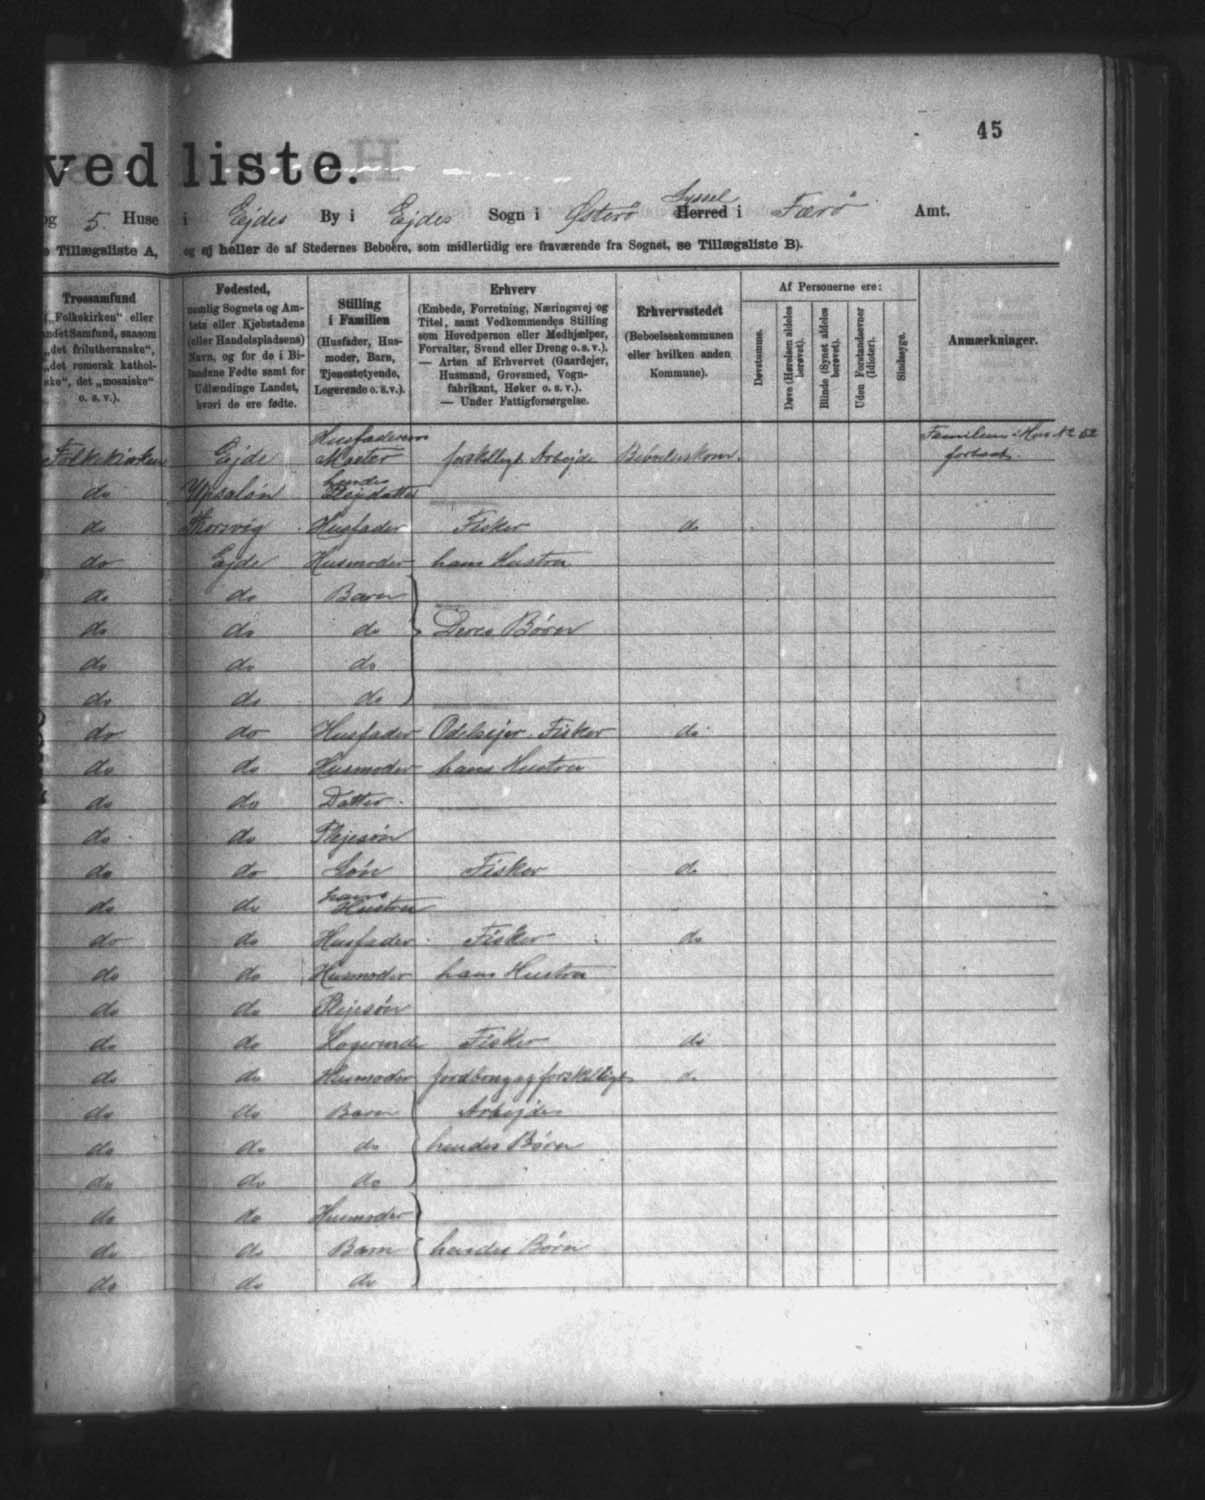 45
ved liste.
og 5. Huse i Ejdes By i Ejdes Sogn i Østerø Syssel Herred i Færø Amt.
e Tillægsliste A, og ej heller de af Stedernes Beboere, som midlertidig ere fraværende fra Sognet, se Tillægsliste B).
Trossamfund
(„Folkekirken“ eller
andet Samfund, saasom
„det frilutheranske“,
„det romersk kathol-
ske“, det „mosaiske“
o. s. v.).
Fødested,
nemlig Sognets og Am-
tets eller Kjøbstadens
(eller Handelspladsens)
Navn, og for de i Bi-
landene Fødte samt for
Udlændinge Landet,
hvori de ere fødte.
Stilling
i Familien
(Husfader, Hus-
moder, Barn,
Tjenestetyende,
Logerende o.s.v.).
Erhverv
(Embede, Forretning, Næringsvej og
Titel, samt Vedkommendes Stilling
som Hovedperson eller Medhjælper,
Forvalter, Svend eller Dreng o. s. v.).
— Arten af Erhvervet (Gaardejer,
Husmand, Grovsmed, Vogn-
fabrikant, Høker o. s. v.).
— Under Fattigforsørgelse.
Erhvervsstedet
(Beboelseskommunen
eller hvilken anden
Kommune).
Af Personerne ere:
Døvstumme.
Døve (Hørelsen aldeles
berøvet).
Blinde (Synet aldeles
berøvet).
Uden Forstandsevner
(Idioter).
Sindssyge.
Anmærkninger.
Folkekirken Ejde Husfaderens Moster forskelligt Arbejde Familien i Hus No 52
fortsat.
do hendes Plejedatter
do Husfader Fisker do
do Ejde Husmoder hans Hustru
do do Barn
do do do Deres Børn
do do do
do do do
do do Husfader Odelsejer. Fisker do
do do Husmoder hans Hustru
do do Datter.
do do Plejesøn
do do Søn Fisker do
do do hans Hustru
do do Husfader Fisker do
do do Husmoder hans Hustru
do do Plejesøn
do do Logerende Fisker do
do do Husmoder Jordbrug og forskelligt do
do do Barn Arbejde
do do do hendes Børn
do do do
do do Husmoder
do do Barn hendes Børn
do do do